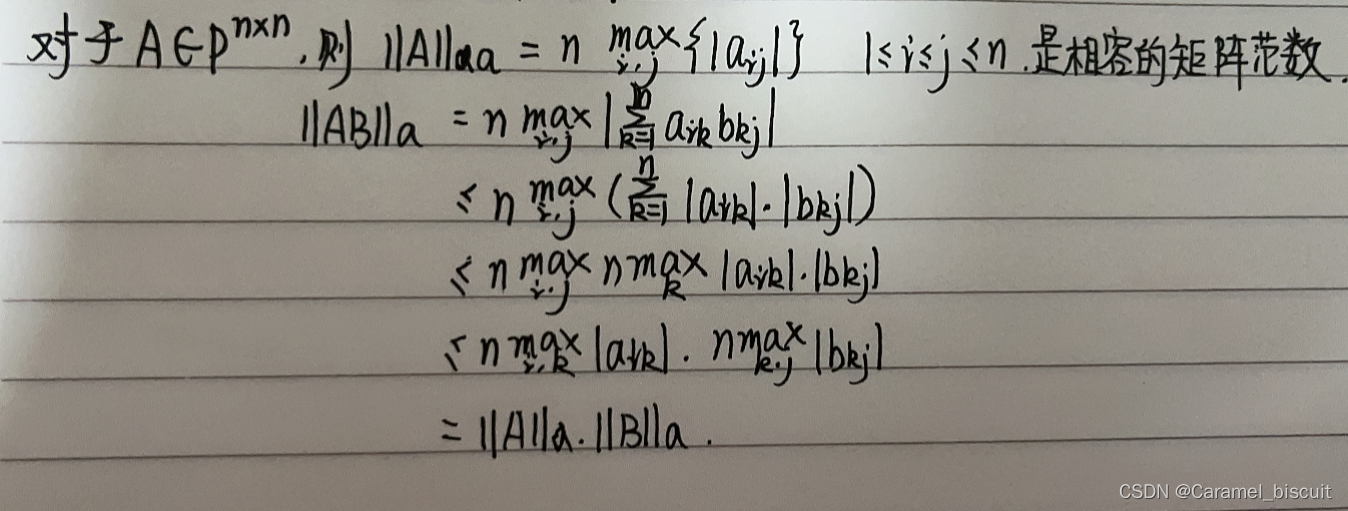 对于A∈P^{n×n},则 ||A||_{αa} = n max_{i,j}{|a_{ij}|} 1≤i≤j≤n.是相容的矩阵范数.
||AB||_a = n max_{i,j} |∑_{k=1}^{n} a_{ik} b_{kj}|
≤ n max_{i,j} (∑_{k=1}^{n} |a_{ik}|·|b_{kj}|)
≤ n max_{i,j} n max_{k} |a_{ik}|·|b_{kj}|
≤ n max_{i,k} |a_{ik}| · n max_{k,j} |b_{kj}|
= ||A||_a · ||B||_a .
CSDN @Caramel_biscuit